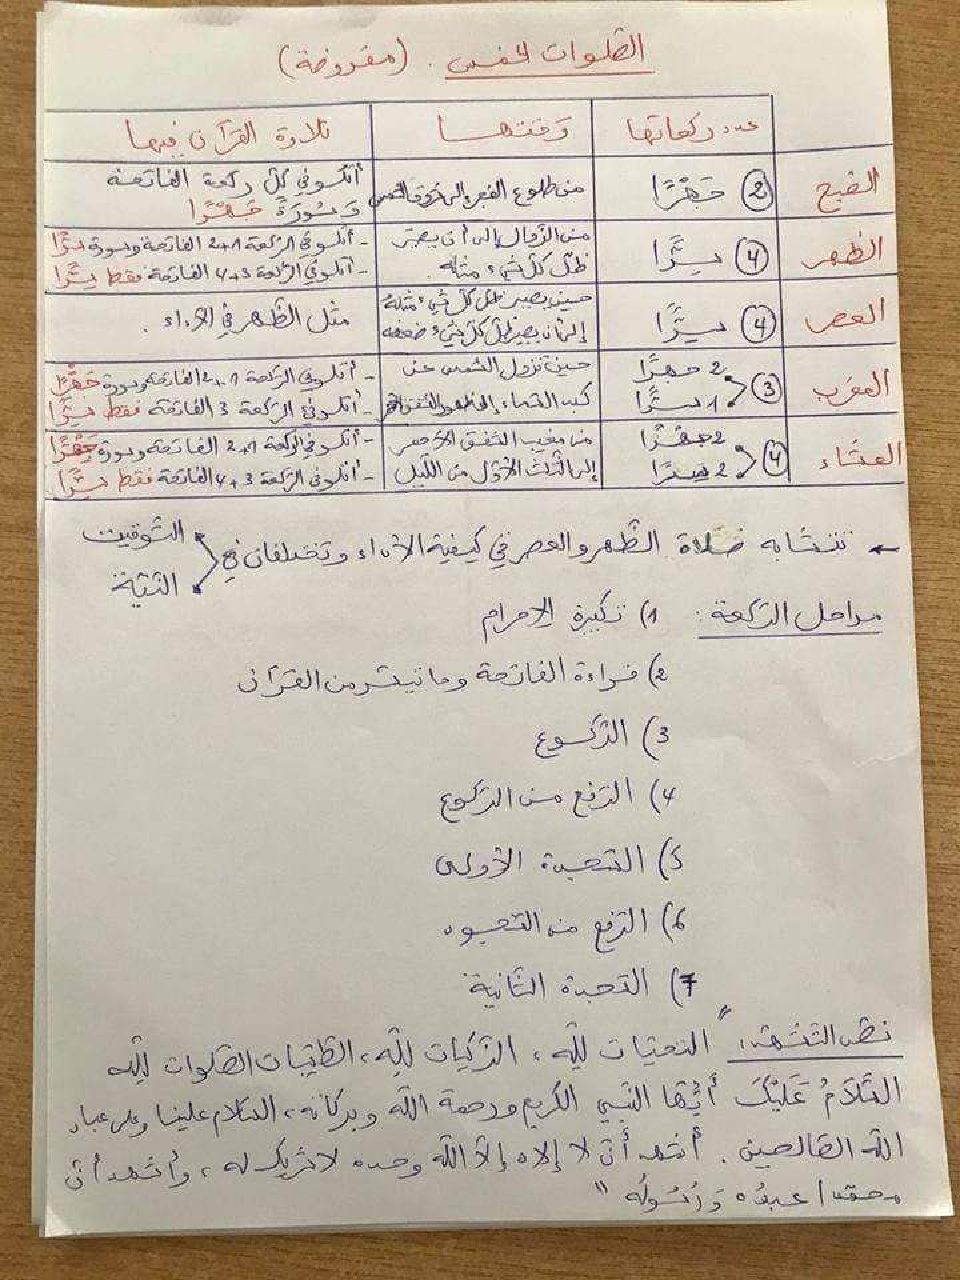 الصلوات الخمس. (مفروضة)
عدد ركعاتها	وقتها	تلاوة القرآن فيها
الصبح	2 جَهْرًا	من طلوع الفجر إلى شروق الشمس	أتلو في كلّ ركعة الفاتحة
وَسُورَةً جَهْرًا
الظهر	4 سِرًّا	من الزوال إلى أن يصير	- أتلو في الركعة 1+2 الفاتحة وسورة سِرًّا
ظلّ كلّ شيء مثله.	- أتلو في الركعة 3+4 الفاتحة فقط سِرًّا
العصر	4 سِرًّا	حين يصير ظلّ كلّ شيء مثلهُ	مثل الظّهر في الأداء.
إلى أن يصير ظلّ كلّ شيء ضعفه
المغرب	3	2 جهرًا	حين تزول الشمس عن	- أتلو في الركعة 1+2 الفاتحة وسورة جَهْرًا
1 سرًّا	كبد السّماء إلى	- أتلو في الركعة 3 الفاتحة فقط سِرًّا
العشاء	4	2 جَهْرًا	من مغيب الشفق الأحمر	- أتلو في الركعة 1+2 الفاتحة وسورة جَهْرًا
2 سِرًّا	إلى الثّلث الأوّل من اللّيل	- أتلو في الركعة 3+4 الفاتحة فقط سِرًّا
← تتشابه صَلَاة الظّهر والعصر في كيفية الأداء وتختلفان في التّوقيت
النيّة
مراحل الرّكعة: 1) تكبيرة الإحرام
2) قراءة الفاتحة وما تيسّر من القرآن
3) الرّكوع
4) الرّفع من الرّكوع
5) السّجدة الأولى
6) الرّفع من السّجود
7) السّجدة الثّانية
نصّ التّشهّد: " التحيّات للّه، الزّكيات للّه، الطّيّبات الصّلوات للّه
السَّلَامُ عَلَيْكَ أَيُّهَا النّبيّ الكريم ورحمة اللّه وبركاته، السّلام علينا وعلى عباد
اللّه الصّالحين. أشهد أن لا إلاه إلاّ اللّه وحده لا شريك له، وأشهد أنّ
محمّدا عبدُه وَرَسُولُه "